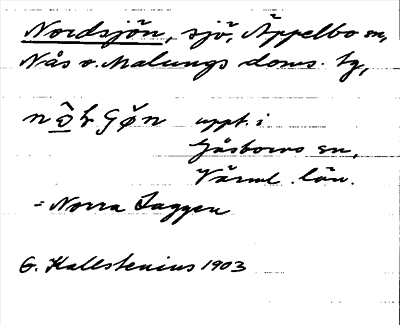 Nordsjön, sjö, Äppelbo sn,
Nås o. Malungs doms. tg,
uppt. i
Gåsborns sn,
Värml. län.
= Norra Saggen
G. Kallstenius 1903